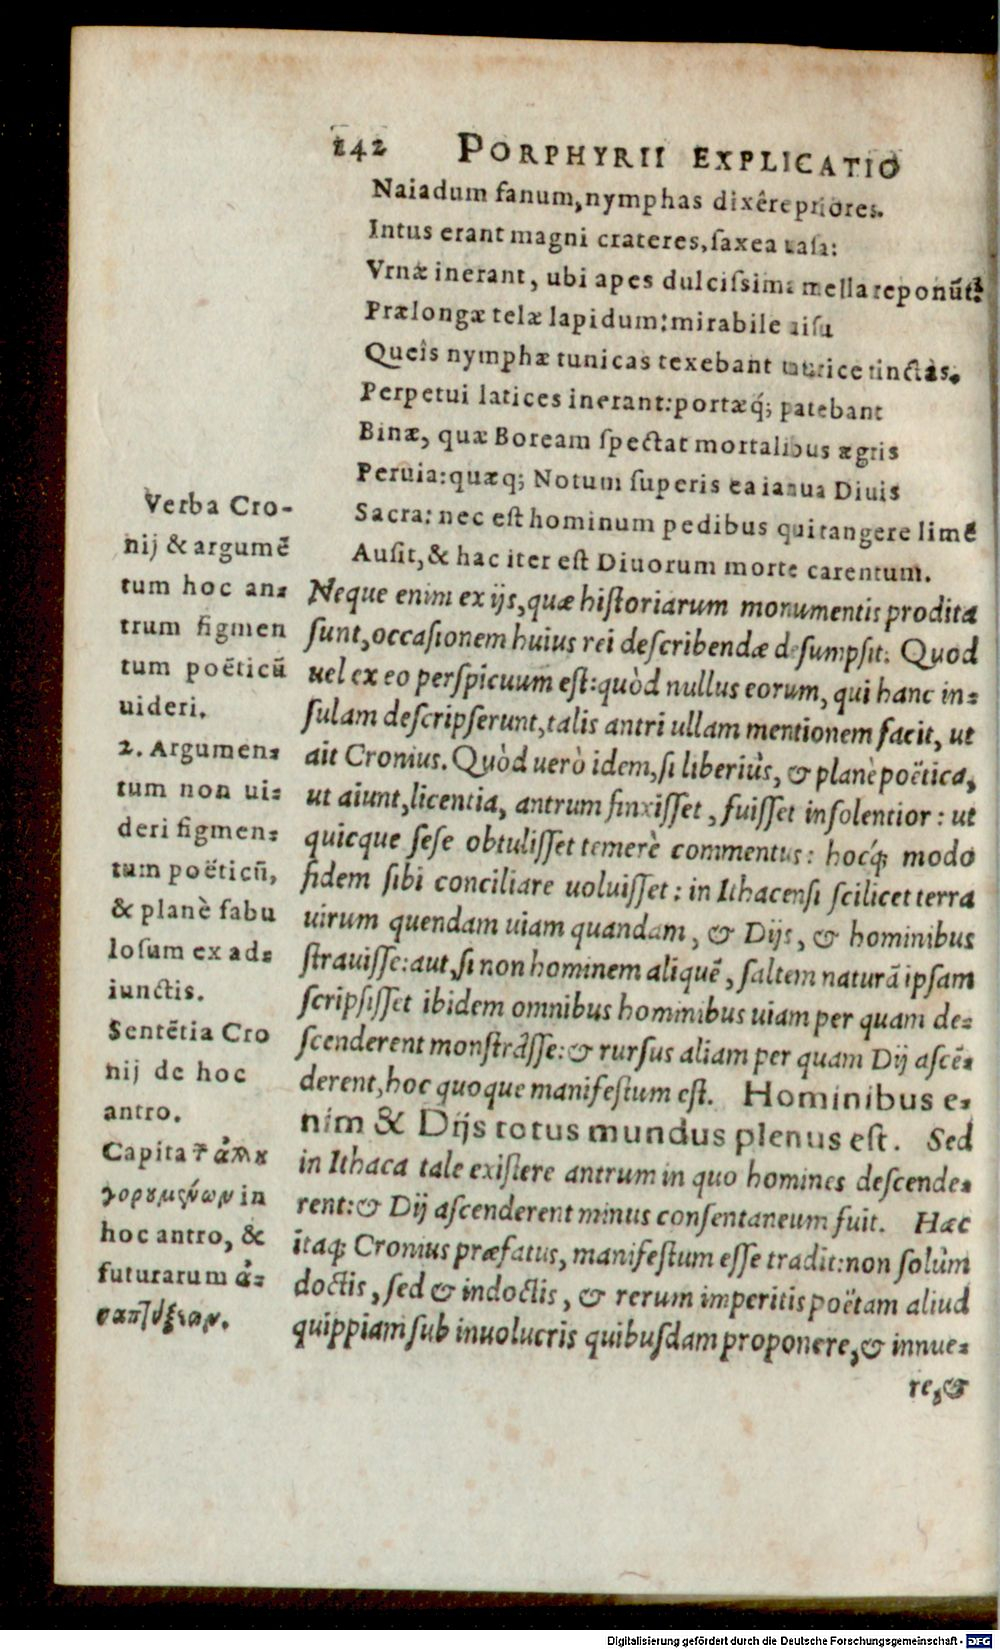 242 PORPHYRII EXPLICATIO
Naiadum fanum, nymphas dixêre priores.
Intus erant magni crateres, saxea uasa:
Vrnæ inerant, ubi apes dulcissima mella reponũt:
Prælongæ telæ lapidum: mirabile uisu
Queîs nymphæ tunicas texebant murice tinctas.
Perpetui latices inerant: portæq́; patebant
Binæ, quæ Boream spectat mortalibus ægris
Peruia: quæq; Notum superis ea ianua Diuis
Sacra: nec est hominum pedibus qui tangere limẽ
Ausit, & hac iter est Diuorum morte carentum.
Neque enim ex ijs, quæ historiarum monumentis prodita
sunt, occasionem huius rei describendæ desumpsit. Quod
uel ex eo perspicuum est: quòd nullus eorum, qui hanc in=
sulam descripserunt, talis antri ullam mentionem facit, ut
ait Cronius. Quòd uerò idem, si liberiùs, & planè poëtica,
ut aiunt, licentia, antrum finxisset, fuisset insolentior: ut
quicque sese obtulisset temerè commentus: hocq́; modo
fidem sibi conciliare uoluisset: in Ithacensi scilicet terra
uirum quendam uiam quandam, & Dijs, & hominibus
strauisse: aut, si non hominem aliquẽ, saltem naturã ipsam
scripsisset ibidem omnibus hominibus uiam per quam de=
scenderent monstrâsse: & rursus aliam per quam Dij ascẽ=
derent, hoc quoque manifestum est. Hominibus e=
nim & Dijs totus mundus plenus est. Sed
in Ithaca tale existere antrum in quo homines descende=
rent: & Dij ascenderent minus consentaneum fuit. Hæc
itaq; Cronius præfatus, manifestum esse tradit: non solùm
doctis, sed & indoctis, & rerum imperitis poëtam aliud
quippiam sub inuolucris quibusdam proponere, & innue=
re, &
Verba Cro-
nij & argumẽ
tum hoc an=
trum figmen
tum poëticũ
uideri.
2. Argumen=
tum non ui=
deri figmen=
tum poëticũ,
& planè fabu
losum ex ad=
iunctis.
Sentẽtia Cro
nij de hoc
antro.
Capita
in
hoc antro, &
futurarum
Digitalisierung gefördert durch die Deutsche Forschungsgemeinschaft - DFG